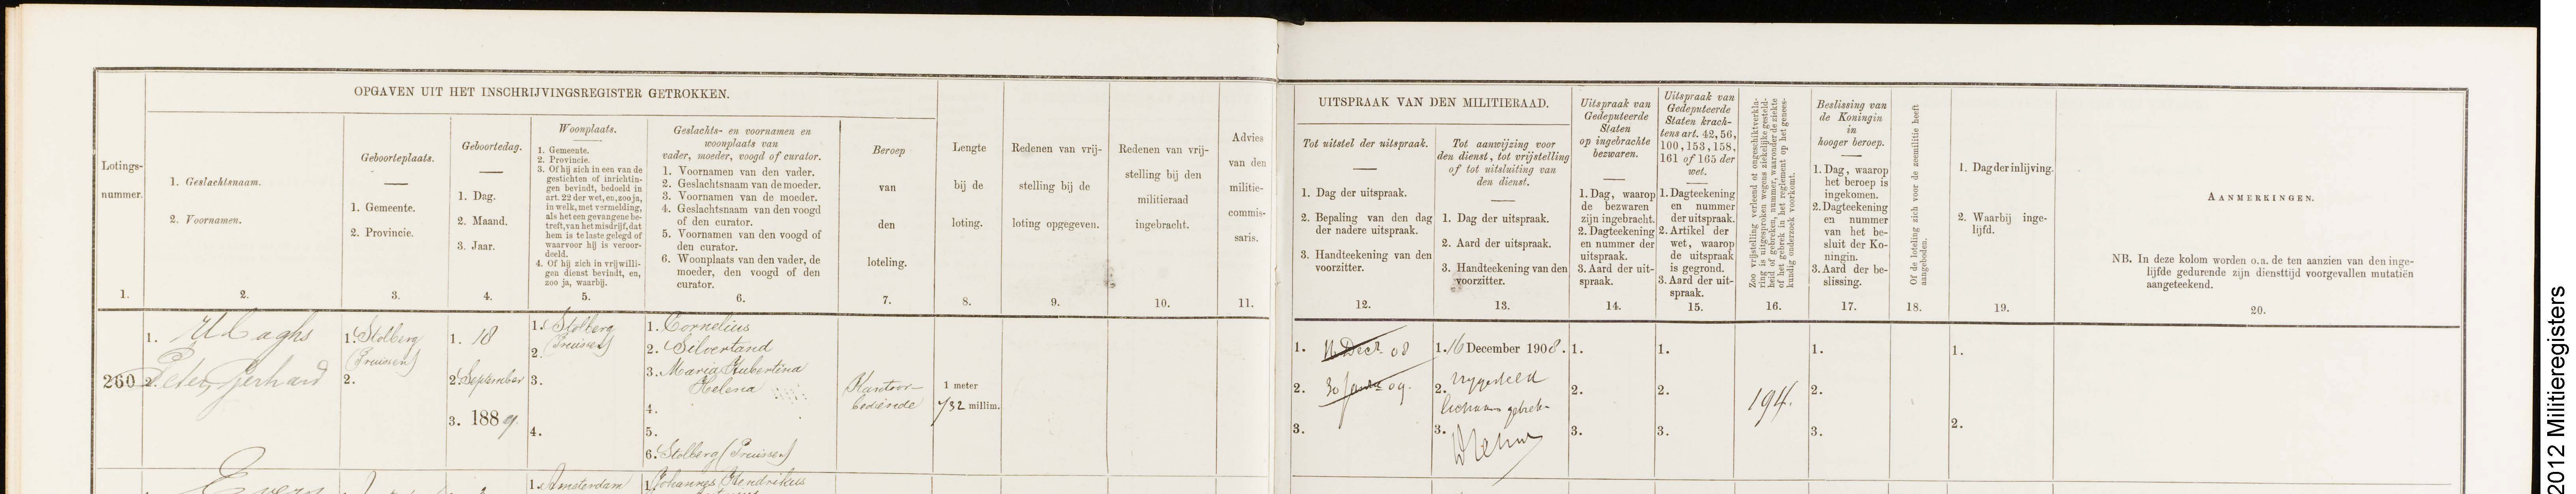 OPGAVEN UIT HET INSCHRIJVINGSREGISTER GETROKKEN.
Lotings-
nummer.
1.
1. Geslachtsnaam.
2. Voornamen.
2.
Geboorteplaats.
1. Gemeente.
2. Provincie.
3.
Geboortedag.
1. Dag.
2. Maand.
3. Jaar.
4.
Woonplaats.
1. Gemeente.
2. Provincie.
3. Of hij zich in een van de
gestichten of inrichtin-
gen bevindt, bedoeld in
art. 22 der wet, en, zoo ja,
in welk, met vermelding,
als het een gevangene be-
treft, van het misdrijf, dat
hem is te laste gelegd of
waarvoor hij is veroor-
deeld.
4. Of hij zich in vrijwilli-
gen dienst bevindt, en,
zoo ja, waarbij.
5.
Geslachts- en voornamen en
woonplaats van
vader, moeder, voogd of curator.
1. Voornamen van den vader.
2. Geslachtsnaam van de moeder.
3. Voornamen van de moeder.
4. Geslachtsnaam van den voogd
of den curator.
5. Voornamen van den voogd of
den curator.
6. Woonplaats van den vader, de
moeder, den voogd of den
curator.
6.
Beroep
van
den
loteling.
7.
Lengte
bij de
loting.
8.
Redenen van vrij-
stelling bij de
loting opgegeven.
9.
Redenen van vrij-
stelling bij den
militieraad
ingebracht.
10.
Advies
van den
militie-
commis-
saris.
11.
UITSPRAAK VAN DEN MILITIERAAD.
Tot uitstel der uitspraak.
1. Dag der uitspraak.
2. Bepaling van den dag
der nadere uitspraak.
3. Handteekening van den
voorzitter.
12.
Tot aanwijzing voor
den dienst, tot vrijstelling
of tot uitsluiting van
den dienst.
1. Dag der uitspraak.
2. Aard der uitspraak.
3. Handteekening van den
voorzitter.
13.
Uitspraak van
Gedeputeerde
Staten
op ingebrachte
bezwaren.
1. Dag, waarop
de bezwaren
zijn ingebracht.
2. Dagteekening
en nummer der
uitspraak.
3. Aard der uit-
spraak.
14.
Uitspraak van
Gedeputeerde
Staten krach-
tens art. 42, 56,
100, 153, 158,
161 of 165 der
wet.
1. Dagteekening
en nummer
der uitspraak.
2. Artikel der
wet, waarop
de uitspraak
is gegrond.
3. Aard der uit-
spraak.
15.
Zoo vrijstelling verleend ot ongeschiktverkla-
ring is uitgesproken wegens ziekelijke gesteld-
heid of gebreken, nummer, waaronder de ziekte
of het gebrek in het reglement op het genees-
kundig onderzoek voorkomt.
16.
Beslissing van
de Koningin
in
hooger beroep.
1. Dag, waarop
het beroep is
ingekomen.
2. Dagteekening
en nummer
van het be-
sluit der Ko-
ningin.
3. Aard der be-
slissing.
17.
Of de loteling zich voor de zeemilitie heeft
aangeboden.
18.
1. Dag der inlijving.
2. Waarbij inge-
lijfd.
19.
AANMERKINGEN.
NB. In deze kolom worden o.a. de ten aanzien van den inge-
lijfde gedurende zijn diensttijd voorgevallen mutatiën
aangeteekend.
20.
260
1.
2. Peter Gerhard
1. Stolberg
(Pruissen)
2.
1. 18
2. September
3. 1889
1. Stolberg
(Pruissen)
2.
3.
4.
1. Cornelius
2. Silvertand
3. Maria Hubertina
Helena
4.
5.
6. Stolberg (Pruissen)
Kantoor-
bediende
1 meter
732 millim.
1. 16 Decr. 08
2. 30 Janu. 09.
3.
1. 16 December 1908.
2. vrijgesteld
lichaams gebrek
3.
1.
2.
3.
1.
2.
3.
194.
1.
2.
3.
1.
2.
Evers
1. Amsterdam
1. Johannes Hendrikus
2012 Militieregisters